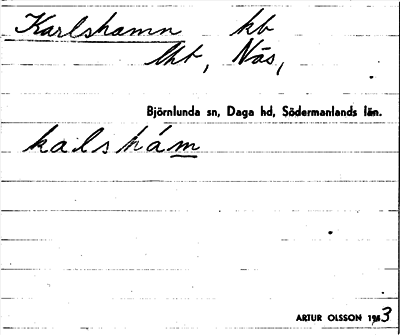 Karlshamn kb
lht, Näs,
Björnlunda sn, Daga hd, Södermanlands län.
kalshám
ARTUR OLSSON 1983